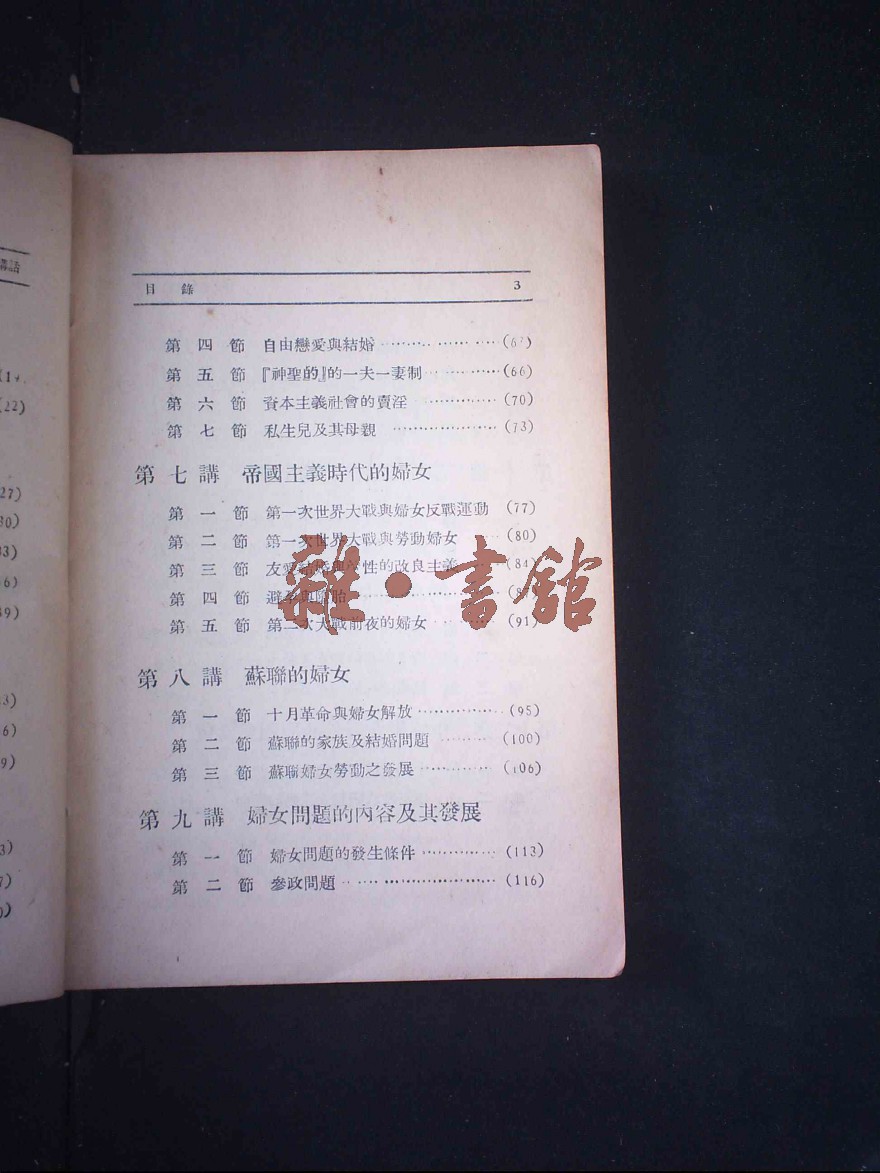 講話
(22)
27)
30)
33)
6)
39)
3)
6)
9)
3)
7)
)
目 錄 3
第四節 自由戀愛與結婚……………(6?)
第五節 『神聖的』的一夫一妻制……………(66)
第六節 資本主義社會的賣淫……………(70)
第七節 私生兒及其母親……………(73)
第七講 帝國主義時代的婦女
第一節 第一次世界大戰與婦女反戰運動 (77)
第二節 第一次世界大戰與勞動婦女……(80)
第三節 友愛結婚與 性的改良主義……(84)
第四節 避孕與墮胎……(87)
第五節 第二次大戰前夜的婦女……(91)
第八講 蘇聯的婦女
第一節 十月革命與婦女解放……………(95)
第二節 蘇聯的家族及結婚問題………(100)
第三節 蘇聯婦女勞動之發展……………(106)
第九講 婦女問題的內容及其發展
第一節 婦女問題的發生條件……………(113)
第二節 參政問題……………………(116)
雜·書館